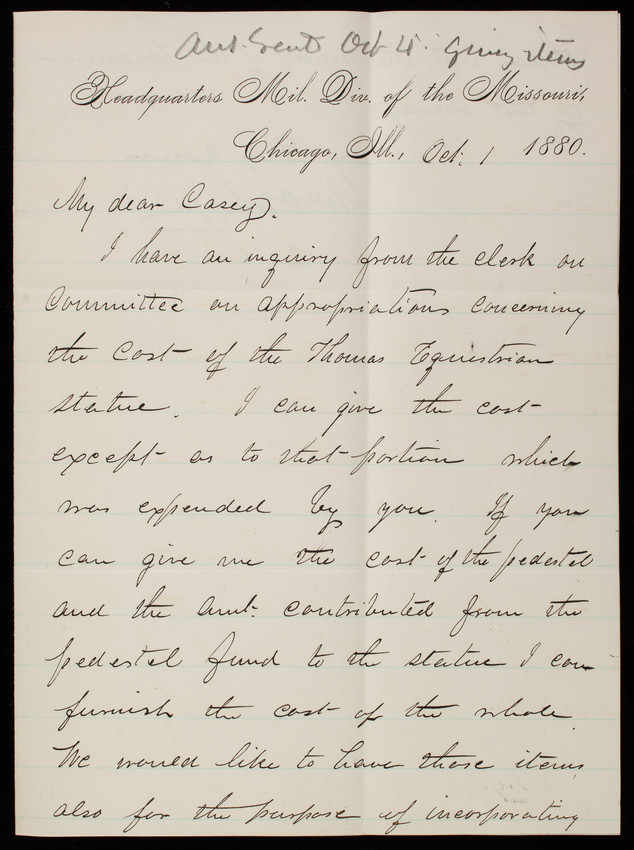 Ans. Sent Oct 4. giving items
Headquarters Mil. Div. of the Missouri,
Chicago, Ill., Oct. 1 1880.
My dear Casey,
I have an inquiry from the clerk on
Committee on appropriations concerning
the cost of the Thomas Equestrian
statue. I can give the cost
except as to that portion which
was expended by you. If you
can give me the cost of the pedestel
and the amt. contributed from the
pedestel fund to the statue I can
furnish the cost of the whole.
We would like to have those items
also for the purpose of incorporating